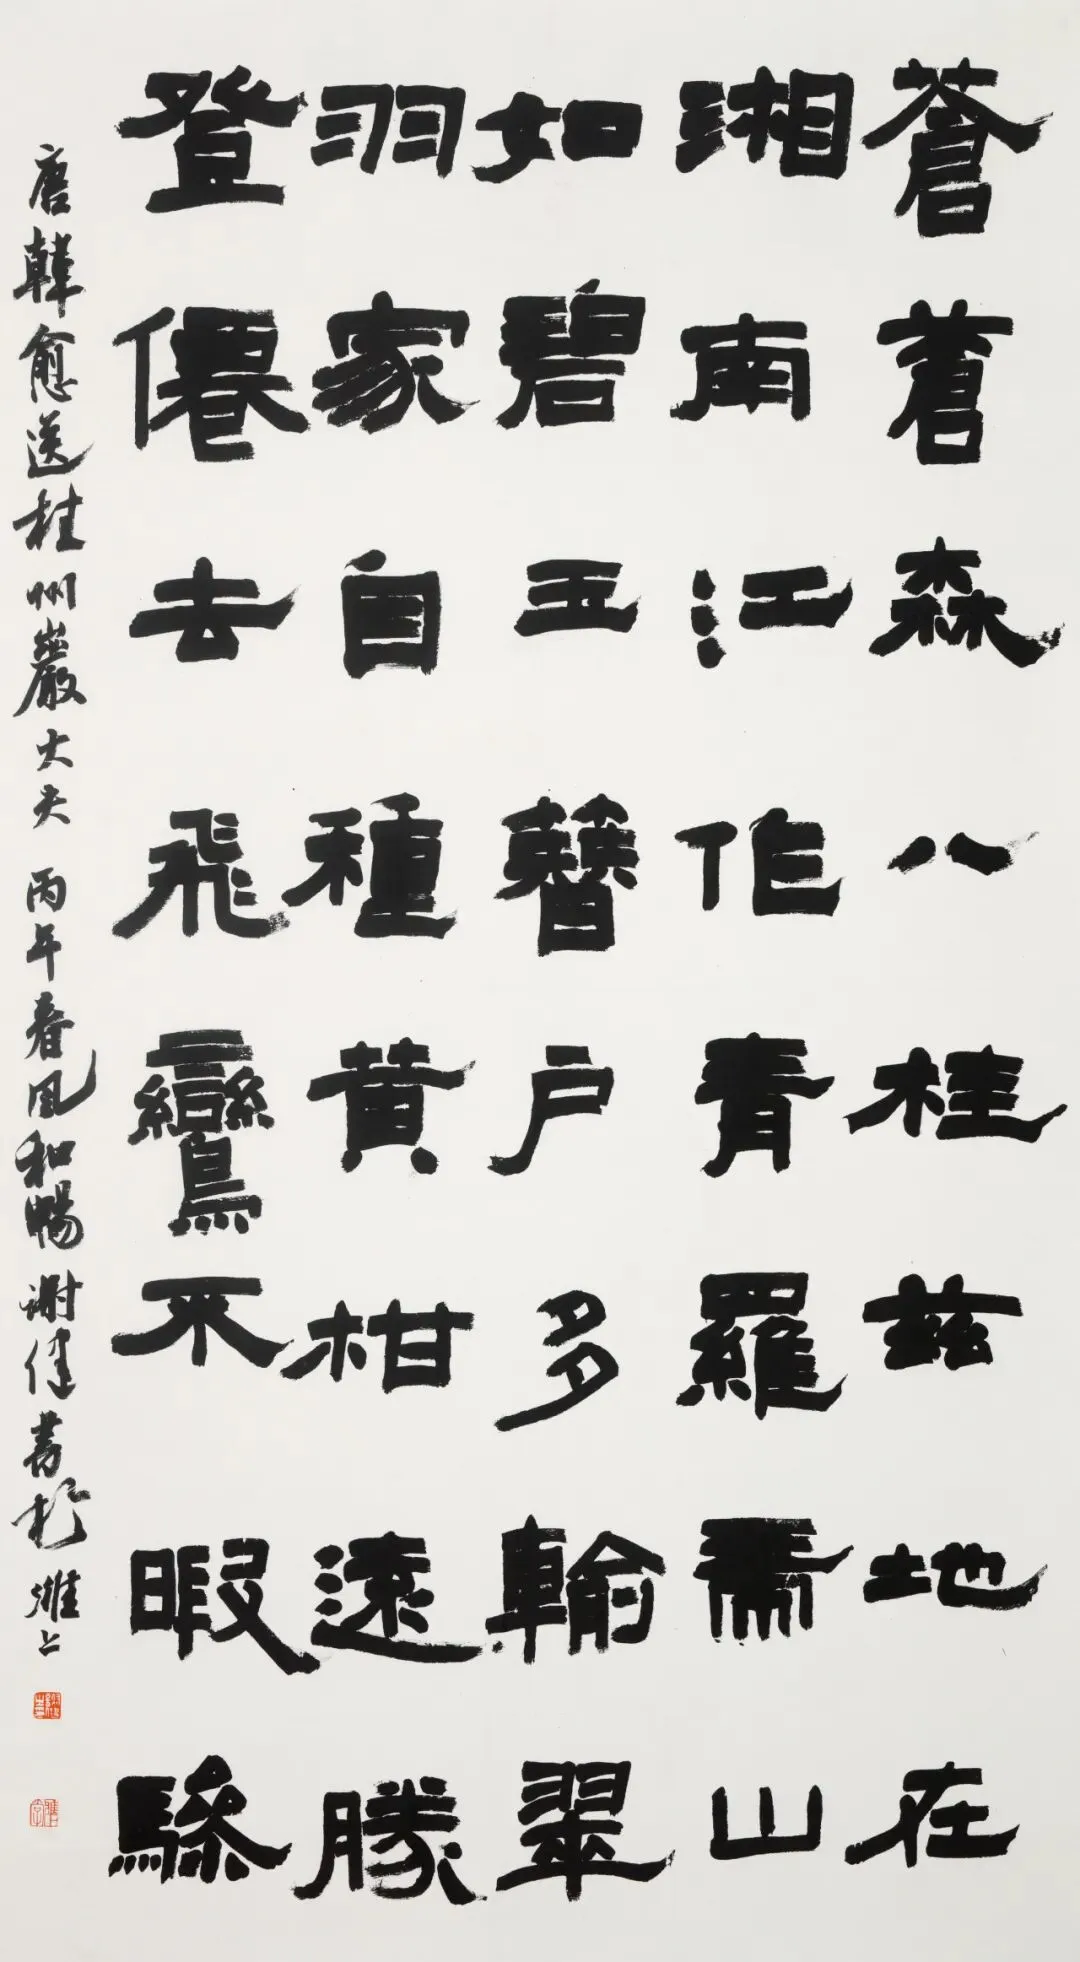 蒼蒼森八桂茲地在
湘南江作青羅帶山
如碧玉簪户多輸翠
羽家自種黄柑遠勝
登僊去飛鸞不暇驂
唐韓愈送桂州嚴大夫 丙午春風和暢 謝健書於濰上